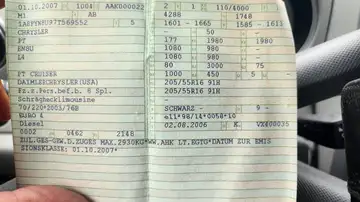 01.10.2007 1D01 AAKD00022 2 1 110/4000
M1 AB 4288 1748
5 1601-1665 1585-1613
CHRYSLER - 50 -
PT 177 1980 1980
EM8U 1080 980 -
L4 1080 980 -
80 3000 75
PT CRUISER 1000 450 5 -
DAIMLERCHRYSLER(USA) 205/55R16 91H
Fz.z.Pers.bef.b. 8 Spl. 205/55R16 91H
Schräghecklimousine -
70/220*2003/76B SCHWARZ - 9 -
EURO 4 e11*98/14*0058*10
Diesel 02.08.2006 K
0002 0462 2148
ZUL.GES-GEW.D.ZUGES MAX.2930KG*WW.AHK LT.EGTG*DATUM ZUR EMIS
SIONSKLASSE: 01.10.2007*